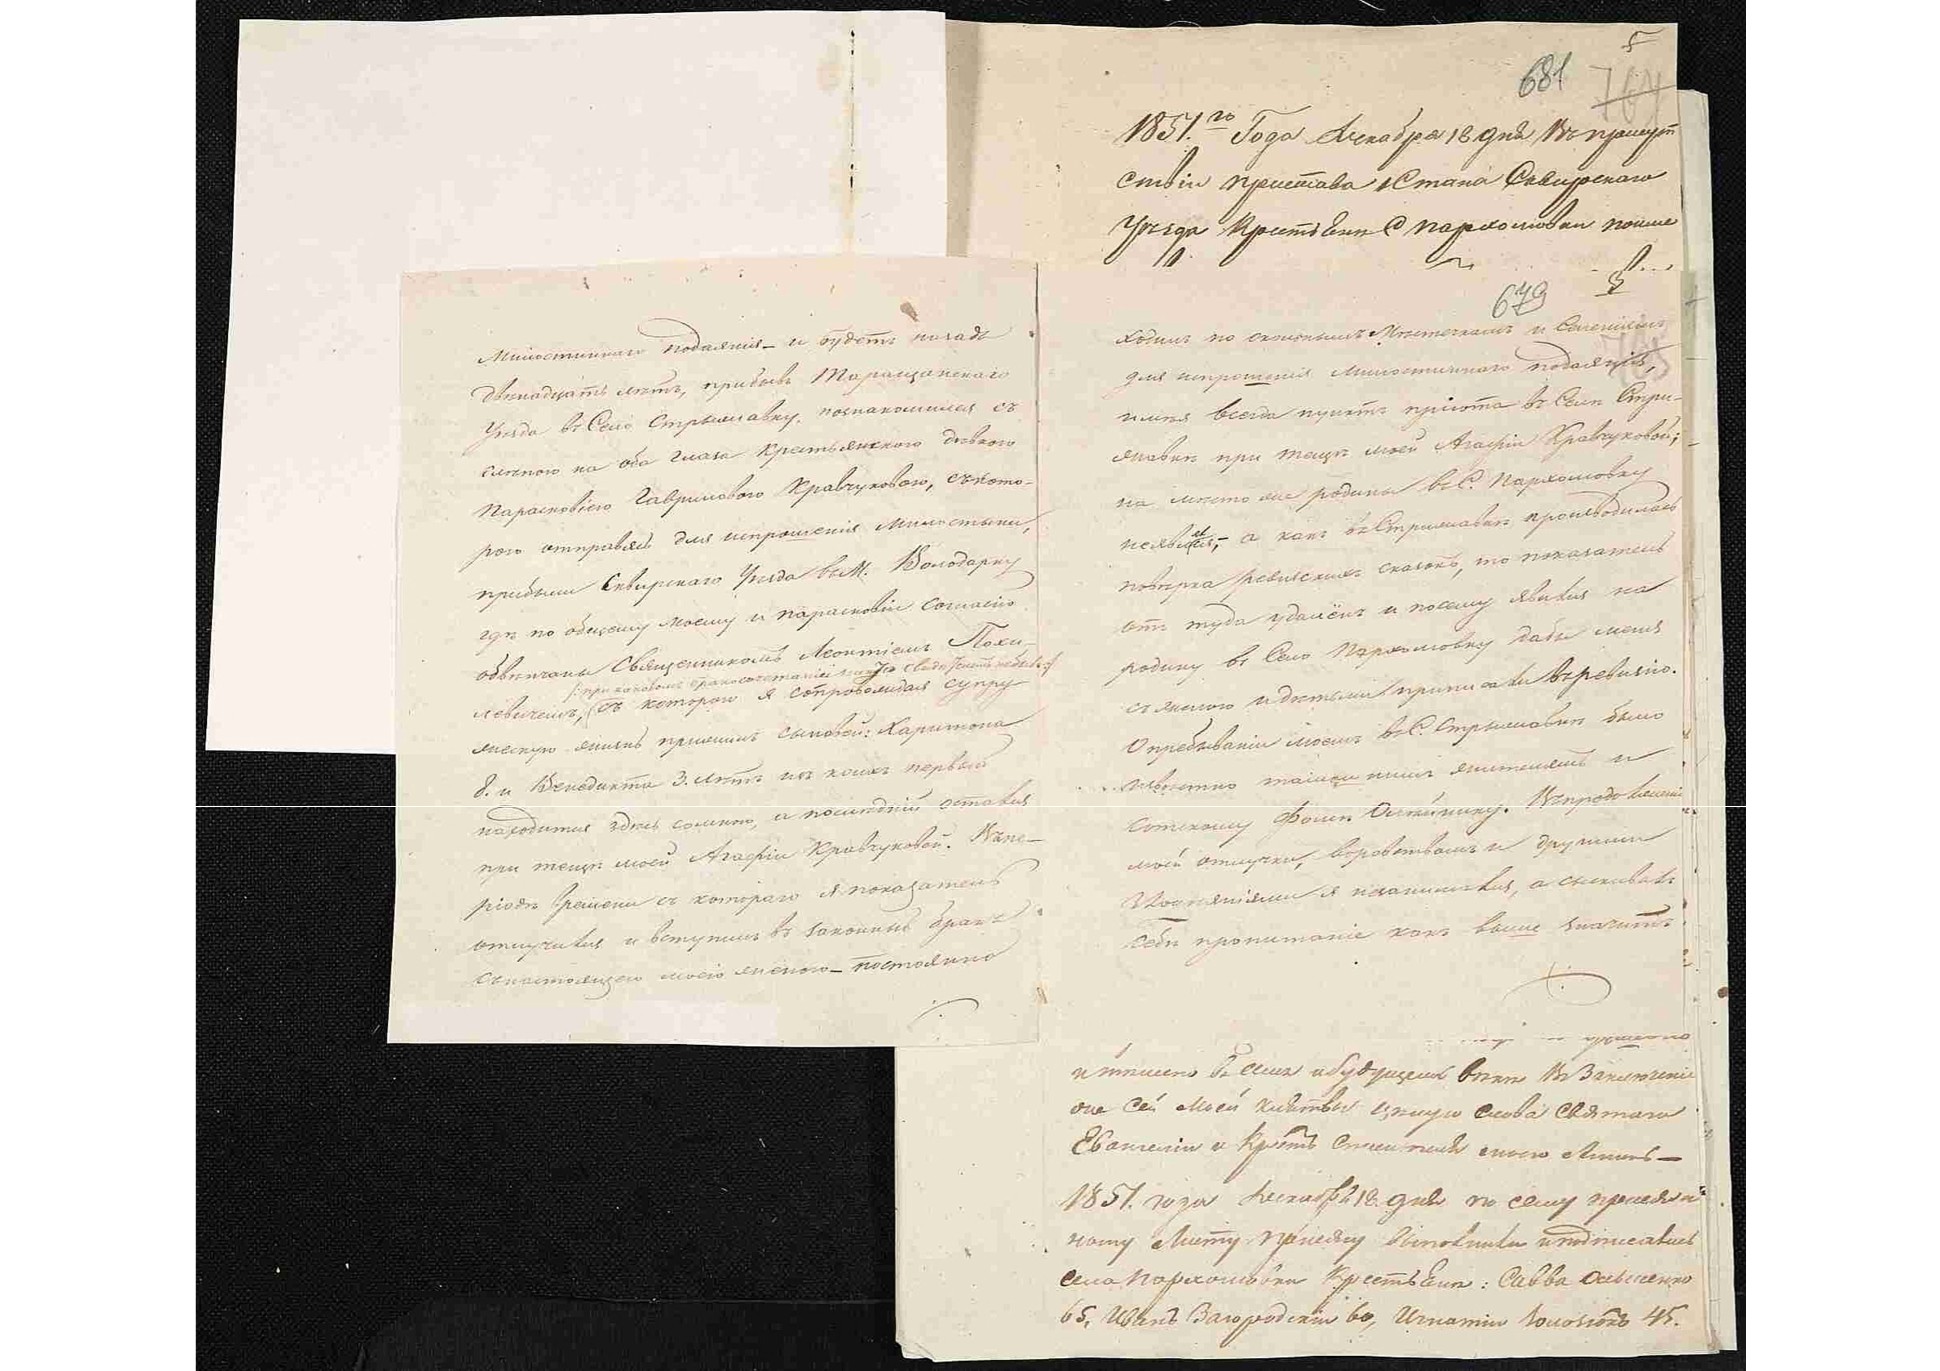 5
681
764
1851.го Года Декабря 18 дня Въ присут
ствіи пристава 1 Стана Сквирскаго
Уезда Крестьяни С Пархомовки поиме
679
милостиннаго подаянія – и будетъ назадъ
двенадцать летъ, прибывъ Таращанскаго
Уезда въ Село Стрыжавку, познакомился съ
слепою на оба глаза крестьянскою девкою
Парасковіею Гавриловою Кравчуковою, съ кото-
рою отправясь для испрошенія милостыни,
прибыли Сквирскаго Уезда въ М. Володарку
где по общему моему и Парасковіи согласію
обвенчаны Священникомъ Леонтіемъ Похи-
/: при каковомъ бракосочетаніи никого свидетелей небыло :/
левичемъ, съ которою я сопровождая супру
жескую жизнь прижилъ сыновей: Харитона
8. и Венедикта 3. летъ изъ коихъ первый
находится здесь со мною, а последній остался
при теще моей Агафіи Кравчуковой. Въ пе-
ріоде времени съ котораго я показатель
отлучился и вступилъ въ законный бракъ
съ настоящею моею женою – постоянно
ходилъ по окольнымъ Местечкамъ и Селеніямъ
для испрошенія милостиннаго подаянія,
имея всегда пунктъ пріюта въ Селе Стри-
жавке при теще моей Агафіи Кравчуковой;
на место же родины въ С. Пархомовку
неявлялся, а какъ въ Стрижавке производилась
поверка ревизскихъ сказокъ, то показатель
отъ туда удалёнъ и посему явился на
родину въ Село Пархомовку дабы меня
съ женою и детьми приписали въ ревизію.
О пребываніи моемъ въ С. Стрыжавке было
известно тамошнимъ жителямъ и
сотскому Фоме Олейнику. Въ продолженіе
моей отлучки, воровствомъ и другими
злодеяніями я незанимался, а снискивалъ
себе пропитаніе какъ выше значитъ
и телесно въ семъ и будущемъ веке Въ Заключеніе
же сей моей клятвы целую слова Святаго
Евангелія и Крестъ Спасителя моего Аминь –
1851. года Декабря 18. дня по сему присяж
ному Листу присягу выполнили и подписались
села Пархомовки Крестьяни: Савва Олексенко
65, Иванъ Загородскій 60, Игнатій 45.